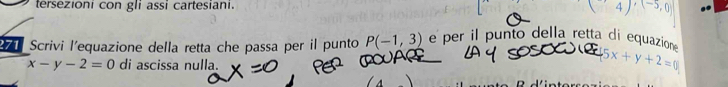 tersezioni con gli assi cartesiani.
4), (-5, 0)]
271 Scrivi l'equazione della retta che passa per il punto P(-1, 3) e per il punto della retta di equazione
x - y - 2 = 0 di ascissa nulla.
5x + y + 2 = 0]
x = 0 PER TROVARE LA Y